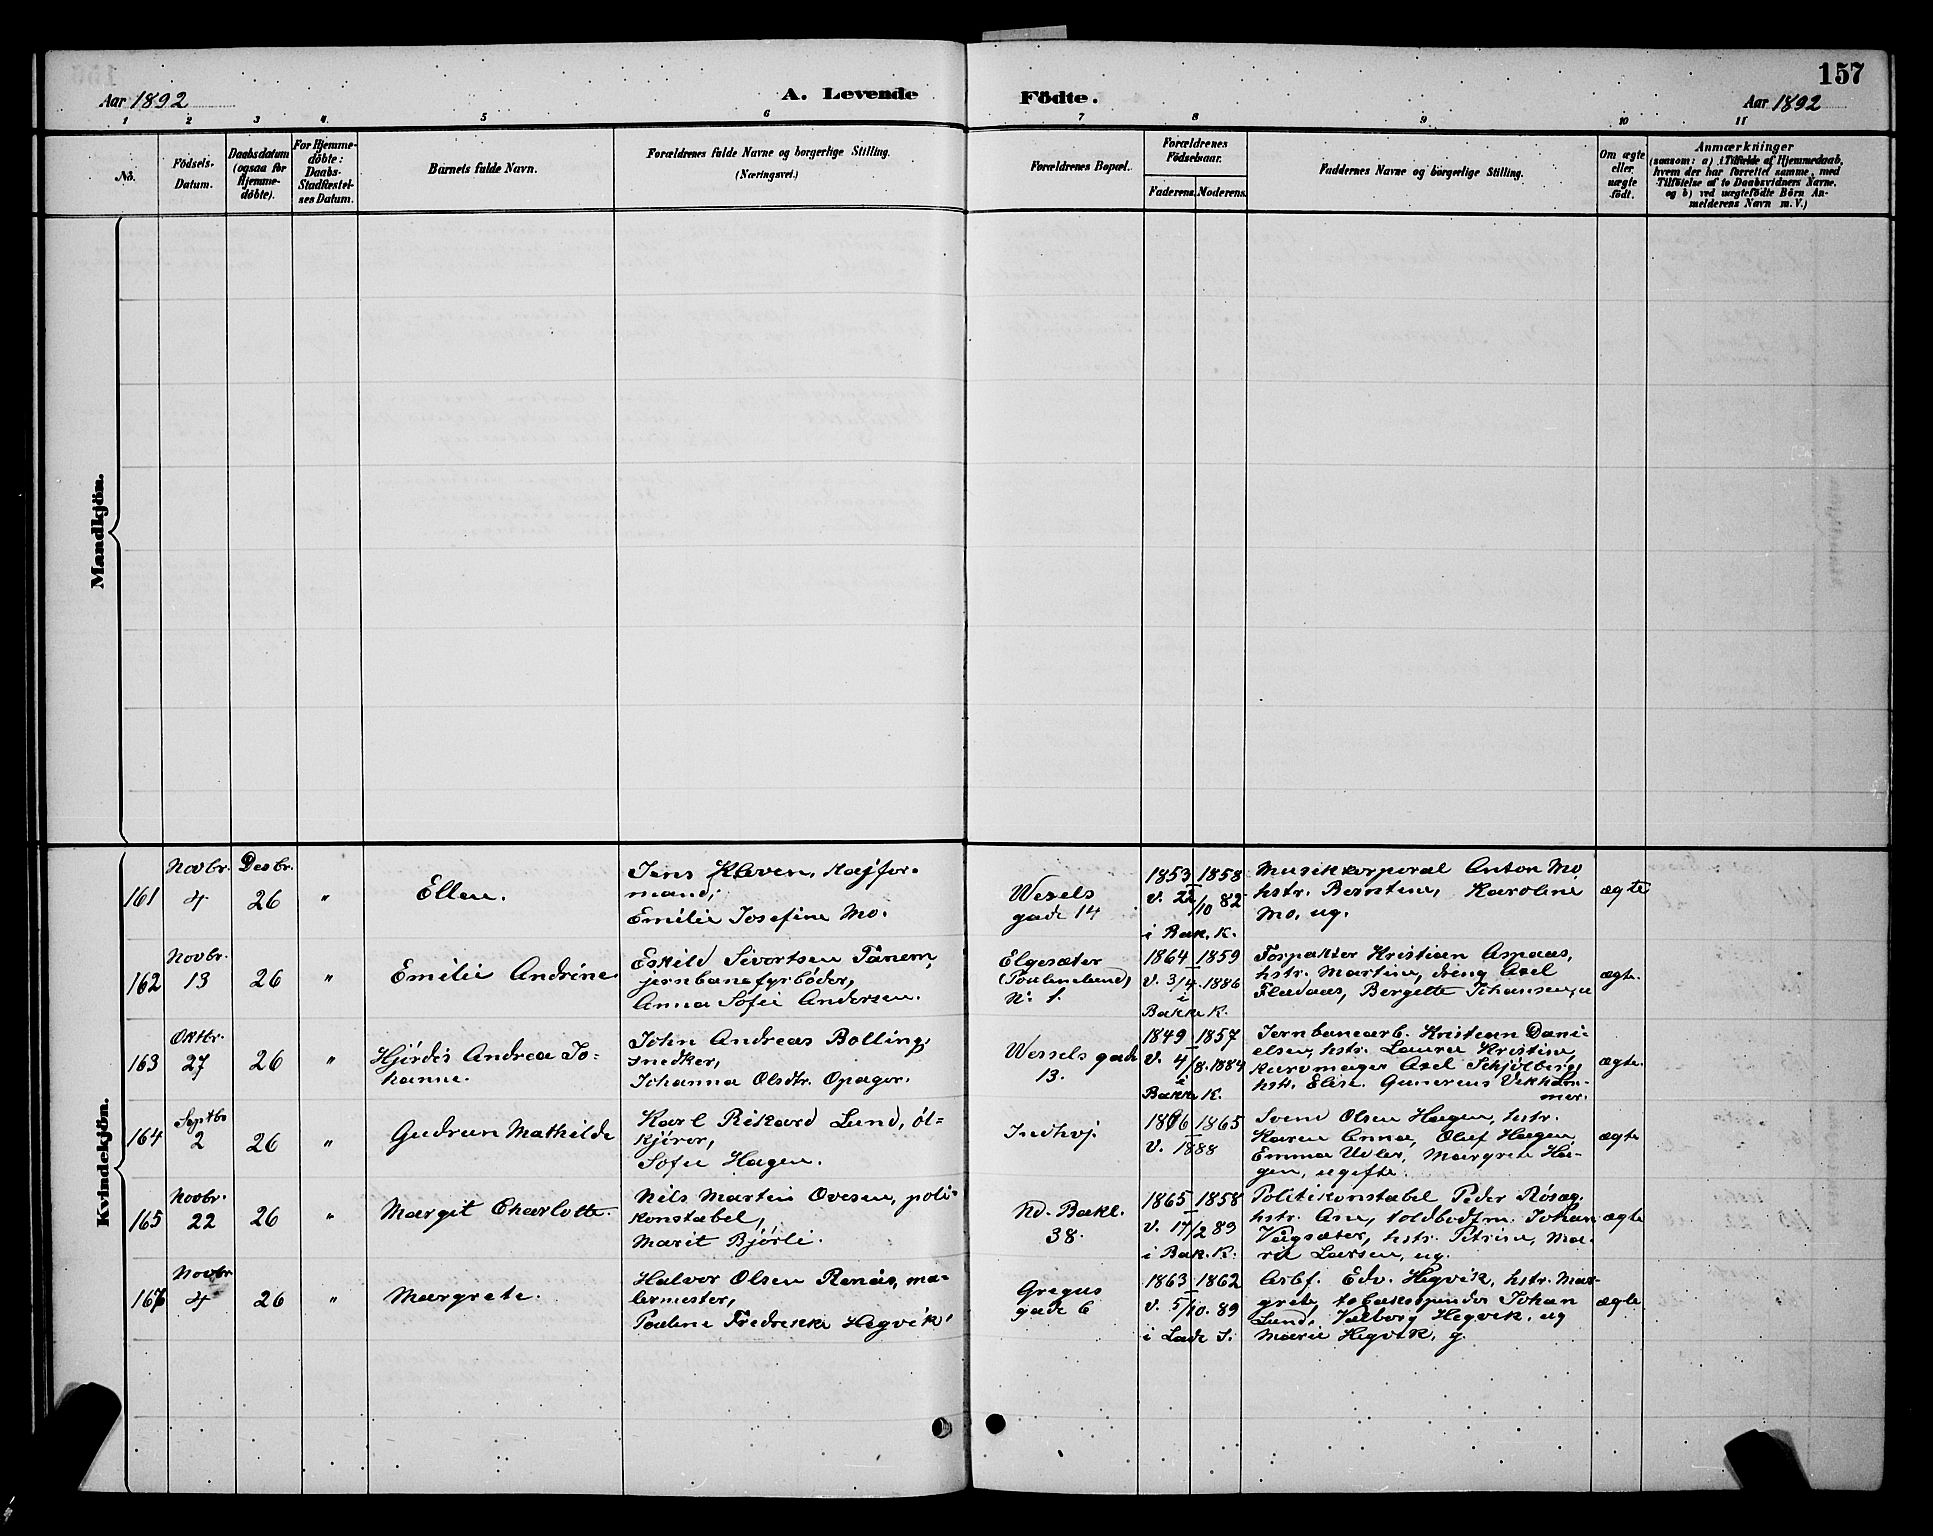 157
Aar 1892
A. Levende Födte.
Aar 1892
1 2 3 4 5 6 7 8 9 10 11
No.
Födsels-
Datum.
Daabsdatum
(ogsaa for
Hjemme-
döbte).
For Hjemme-
döbte:
Daabs-
Stadfæstel-
ses Datum.
Barnets fulde Navn.
Forældrenes fulde Navne og borgerlige Stilling.
(Næringsvei.)
Forældrenes Bopæl.
Forældrenes
Födselsaar.
Faderens. Moderens.
Faddernes Navne og borgerlige Stilling.
Om ægte
eller
uægte
födt.
Anmærkninger
(saasom: a) i Tilfælde af Hjemmedaab,
hvem der har forrettet samme, med
Tilföielse af to Daabsvidners Navne,
og b) ved uægtefödte Börn An-
melderens Navn m. V.)
Mandkjön.
Kvindekjön.
161
Novbr.
4
Desbr.
26
"
Ellen.
Jens Kleven, Kajfor-
mand;
Emilie Josefine Mo.
Wesels
gade 14
1853 1858
V. 22/10 82
i Bak. K.
Musikkorporal Anton Mo,
hstr. Berntine, Karoline
Mo, ug.
ægte
162
Novbr.
13
26
"
Emilie Andrine.
Eskild Sivertsen Tånem,
jernbanefyrbøder,
Anna Sofie Andersen.
Elgesæter
(Poulinelund)
No. 1.
1864 1859
V. 3/4. 1886
i
Bakke K.
Forpakter Kristian Aspaas,
hstr. Martine, dreng Axel
Fladaas, Bergitte Johansen, u
ægte.
163
Oktbr.
27
26
"
Hjördis Andrea Jo-
hanne.
John Andreas Bolling,
snedker,
Johanna Olsdtr. Opager.
Wessels gade
13.
1849 1857
V. 4/8. 1884
i
Bakke K.
Jernbanearb. Kristian Dani-
elsen, hstr. Laura Kristine,
karetmager Axel Schjölberg,
hstr. Elise. Gunerius Vikham-
mer.
ægte.
164
Septbr
2
26
"
Gudrun Mathilde
Karl Rikard Lund, öl-
kjörer,
Sofie Hagen.
Indhvj.
1866 1865
V. 1888
Svend Olsen Hagen, hstr.
Karen Anna, Oluf Hagen,
Emma Udler, Margrete Ha-
gen, ugifte.
ægte
165
Novbr.
22
26
"
Margit Charlotte.
Nils Martin Ovesen, poli-
konstabel,
Marit Bjørli.
Nd. Bakl.
38.
1865 1858
V. 17/2 89
i Bak. K.
Politikonstabel Peder Rösæg,
hstr. Ane, toldbodfm. Johan
Vågsæter, hstr. Petrine, Ma-
rit Larsen, ug.
ægte
166
Novbr
4
26
"
Margrete.
Halvor Olsen Renås, ma-
lermester,
Pauline Fredrikke Hegvik.
Gregus
gade 6
1863 1862
V. 5/10. 89
i Lade S.
Arbf. Edv. Hegvik, hstr. Mar-
grete, tobakspinder Johan
Lund, Valborg Hegvik, ug
Marie Hegvik, g.
ægte